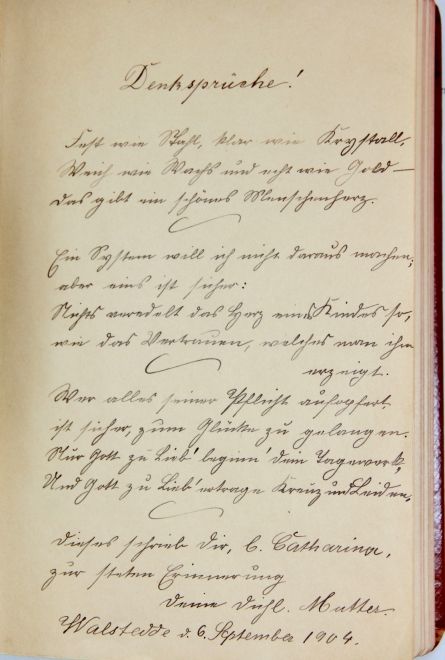 Denksprüche!
Fest wie Stahl, klar wie Krystall,
Weich wie Wachs und echt wie Gold –
Das gibt ein schönes Menschenherz.
Ein System will ich nicht daraus machen,
aber eins ist sicher:
Nichts veredelt das Herz eines Kindes so,
wie das Vertrauen, welches man ihm
erzeigt.
Wer alles seiner Pflicht aufopfert,
ist sicher, zum Glücke zu gelangen.
Nur Gott zu Lieb' beginn' dein Tagewerk,
Und Gott zu Lieb' ertrage Kreuz und Leiden.
Dieses schrieb Dir, l. Catharina,
zur steten Erinnerung
Deine Mutter.
Walstedde d. 6. September 1904.